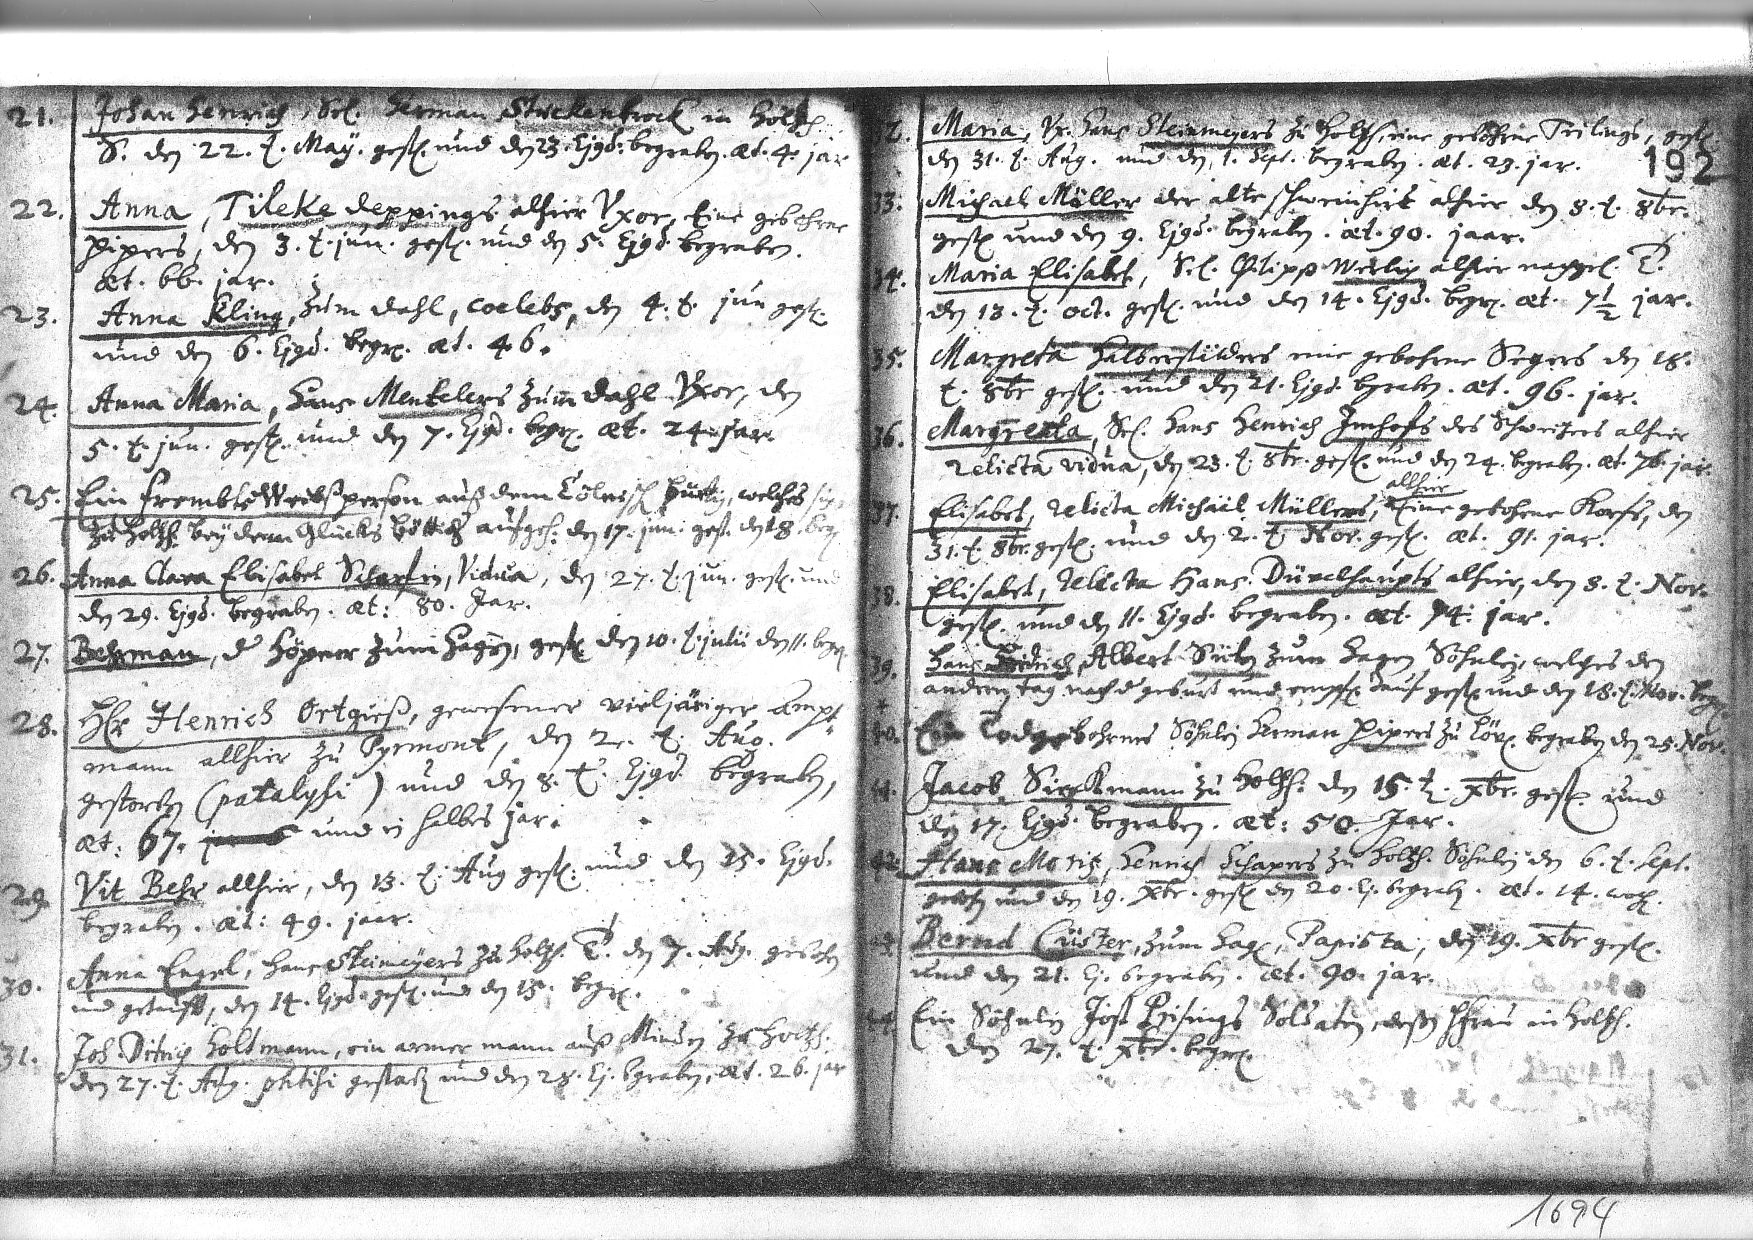 21. Johan Henrich, Sel. Herman Streckenbrock in Holtzh.
S. den 22. t. May. gest. und den 23. Ejsd. begraben. æt. 4. jar
22. Anna, Tileke deppings alhier Uxor, Eine gebohrne
Pipers, den 3. t. jun. gest. und den 5. Ejsd. begraben.
æt. 66. jar.
23. Anna Kling, zum dahl, coelebs, den 4. t. jun gest.
und den 6. Ejsd. begr. æt. 46.
24. Anna Maria, Hans Menkelers zum Dahl Uxor, den
5. t. jun. gest. und den 7. Ejsd. begr. æt. 24. jar.
25. Ein frembte Weibsperson auß dem Cölnisch bürtig, welches
zu Holtzh. bey dem Glücks aufgeh. den 17. jun. gest. den 18. begr.
26. Anna Clara Elisabet Scharfin, Vidua, den 27. t. jun. gest. und
den 29. Ejsd. begraben. æt: 80. Jar.
27. Behrman, d Höpner zum Hagen, gest. den 10. t. julii den 11. begr.
28. Hr Henrich Ortgieß, gewesener vieljäriger Ampt-
mann allhier zu Pyrmont, den 2. t. Aug.
gestorben (paralysi) und den 8. t. Ejsd. begraben,
æt: 67. und ein halbes jar.
29. Vit Behr allhier, den 13. t. Aug gest. und den 15. Ejsd.
begraben. æt: 49. jaar.
30. Anna Engel, Hans Steimeyers zu Holtzh. T. den 7. Aug. gebohren
und getaufft, den 14. Ejsd. gest. und den 15. begr.
31. Joh. Ditrich Holtmann, ein armer mann auß Minden zu Holtzh.
den 27. t. Aug. phtisi gestorb. und den 28. Ej. begraben, æt. 26. jar
192
2. Maria, Ux. Hans Steinmeyers zu Holtzh. eine gebohrne Trilings, gest.
den 31. t. Aug. und den 1. Sept. begraben. æt. 29. jar.
33. Michael Müller der alte schweinhirt alhier den 8. t. 8br.
gest. und den 9. Ejsd. begraben. æt. 90. jaar.
34. Maria Elisabet, Sel. Philipp Werlig alhier nachgel. T.
den 13. t. oct. gest. und den 14. Ejsd. begr. æt. 7 1/2 jar.
35. Margreta Halberstädters eine gebohrne Segers den 18.
t. 8br gest. und den 21. Ejsd. begraben. æt. 96. jar.
36. Margreta, Sel. Hans Henrich Imhofs des Schweitzers alhier
relicta vidua, den 23. t. 8br. gest. und den 24. begraben. æt. 76. jar.
37. Elisabet, relicta Michäel Müllers, allhier Eine gebohrne Korfs, den
31. t. 8br. gest. und den 2. t. Nov. gest. æt. 91. jar.
38. Elisabet, relicta Hans Düvelhaupts alhier, den 8. t. Nov.
gest. und den 11. Ejsd. begraben. æt. 74. jar.
39. Hans Albert zum Hagen Söhnlein, welches den
andern tag nach d geburt und gest. und den 18. t. Nov. begr.
40. Ein Todgebohrnes Söhnlein Herman Pipers zu Löw. begraben den 25. Nov.
41. Jacob Sieckmann zu Holtzh. den 15. t. Xbr. gest. und
den 17. Ejsd. begraben. æt: 50. Jar.
42. Hans Moritz, Henrich Schapers zu Holtzh. Söhnlein den 6. t. Sept.
gebohren und den 19. Xbr. gest. den 20. Ej. begrab. æt. 14. woch.
43. Bernd Cüster, zum Hag., Papista, den 19. Xbr gest.
und den 21. Ej. begraben. æt. 90. jar.
44. Ein Söhnlein Jost Soldaten, deßen frau in Holtzh.
den 27. t. Xbr. begr.
1694